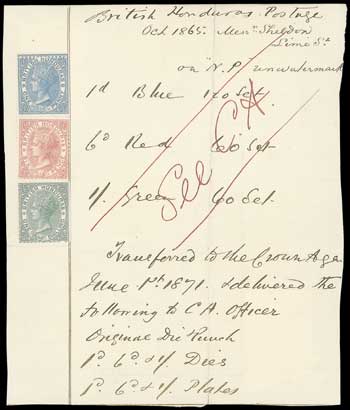 British Honduras Postage
Oct 1865. Messrs Shegdon
Lime St
on "N.P." unwatermark
1d Blue 120 Set
6d Red 60 Set
1/. Green 60 Set.
See C.A.
Transferred to the Crown Age
June 1st 1871. & delivered the
following to C.A. Officer
Original Die Punch
1d. 6d. & 1/. Dies
1d. 6d. & 1/. Plates
BRITISH HONDURAS
BRITISH HONDURAS
BRITISH HONDURAS